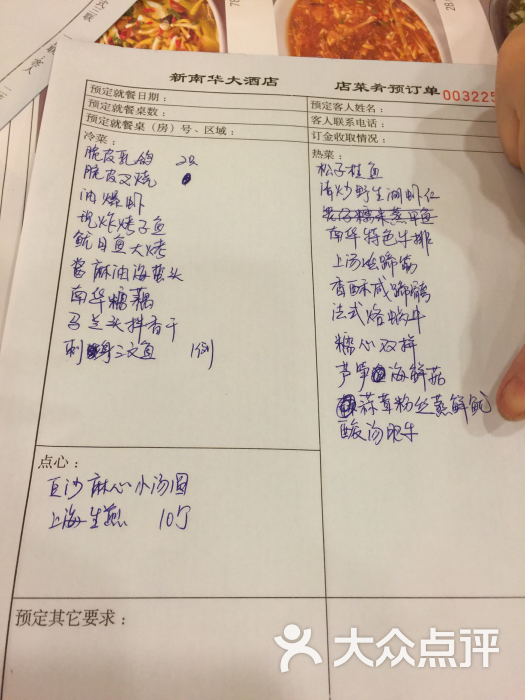 新南华大酒店 店菜肴预订单 003225
预定就餐日期： 预定客人姓名：
预定就餐桌数： 客人联系电话：
预定就餐桌（房）号、区域： 订金收取情况：
冷菜：
脆皮乳鸽 2只
脆皮叉烧
油爆虾
现炸烤子鱼
鱿目鱼大烤
葱麻油海蜇头
南华糖藕
马兰头拌香干
刺身三文鱼 1例
热菜：
松子桂鱼
清炒野生湖虾仁
南华特色牛排
上汤烩蹄筋
香酥咸蹄髈
法式焗蜗牛
糯心双拼
芦笋海鲜菇
蒜茸粉丝蒸鲜鲍
酸汤肥牛
点心：
豆沙麻心小汤圆
上海生煎 10个
预定其它要求：
大众点评